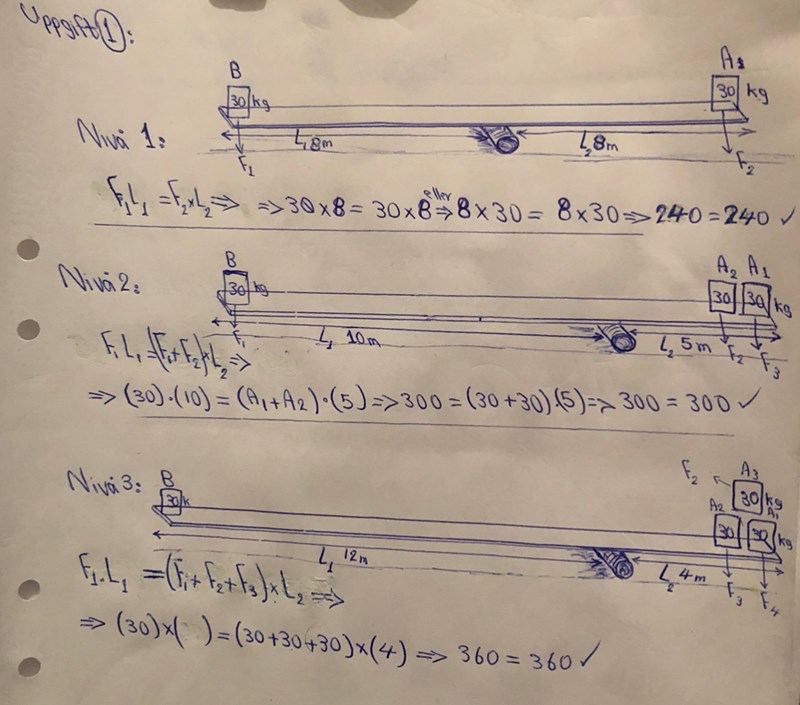 Uppgift ①:
B A₁
30 kg 30 kg
Nivå 1: L₁ 8m L₂ 8m
F₁ F₂
F₁L₁ = F₂×L₂ => => 30×8 = 30×8 eller => 8×30 = 8×30 => 240 = 240 ✓
B A₂ A₁
Nivå 2: 30 kg 30 30 kg
F₁ L₁ 10m L₂ 5m F₂ F₃
F₁L₁ = (F₁+F₂)×L₂ =>
=> (30)·(10) = (A₁+A₂)·(5) => 300 = (30+30)(5) => 300 = 300 ✓
Nivå 3: B F₂ A₃
30 k 30 kg
A₂ A₁
30 30 kg
L₁ 12m L₂ 4m F₃ F₄
F₁·L₁ = (F₁+F₂+F₃)×L₂ =>
=> (30)×( ) = (30+30+30)×(4) => 360 = 360 ✓